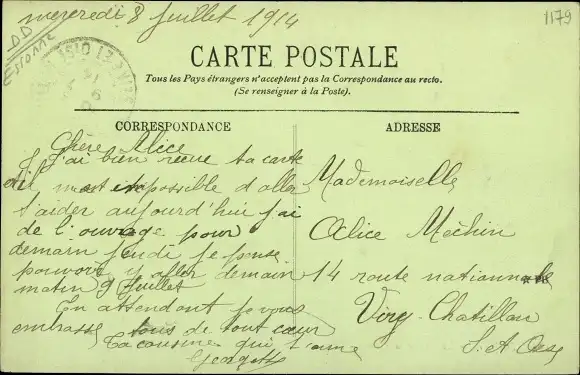 mercredi 8 Juillet 1914
1179
DD
Essonne
CARTE POSTALE
Tous les Pays étrangers n'acceptent pas la Correspondance au recto.
(Se renseigner à la Poste).
CORRESPONDANCE
Chère Alice
J'ai bien reçue ta carte
il m'est impossible d'aller
t'aider aujourd'hui j'ai
de l'ouvrage pour
demain jeudi je pense
pouvoir y aller demain
matin 9 Juillet
En attendant je vous
embrasse tous de tout cœur
Ta cousine qui t'aime
Georgette
ADRESSE
Mademoiselle
Alice Méchin
14 route nationale
Viry-Chatillon
S. et Oise